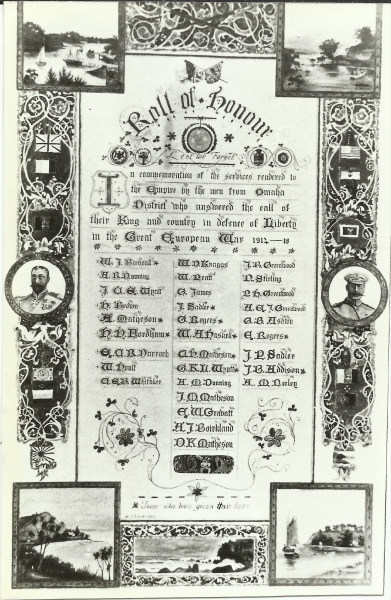 Roll of Honour
Lest we Forget
In commemoration of the services rendered to
the Empire by the men from Omaha
District who answered the call of
their King and country in defence of Liberty
in the Great European War 1914-18
W. J. Birdsall
A. R. Dunning
J. C. G. Wyatt
H.
A. Matheson
H. H. Fordham
E. C. R. Darroch
W. Wyatt
C. E. B. Whitaker
W. D Knaggs
W. Pratt
G. James
J. Sadler
G. Rogers
W. A Haslett
C. H. Matheson
G. K. L. Wyatt
A. M. Dunning
J. M. Matheson
E. W Gravatt
A. J. Boickland
D. K. Matheson
J. R. Greenwood
P. Stirling
P. H. Greenwood
A. G. J. Greenwood
G. B. Ashton
E. Rogers
J. P. Sadler
J. B. Addison
A. M. Neeley
Those who have given their lives